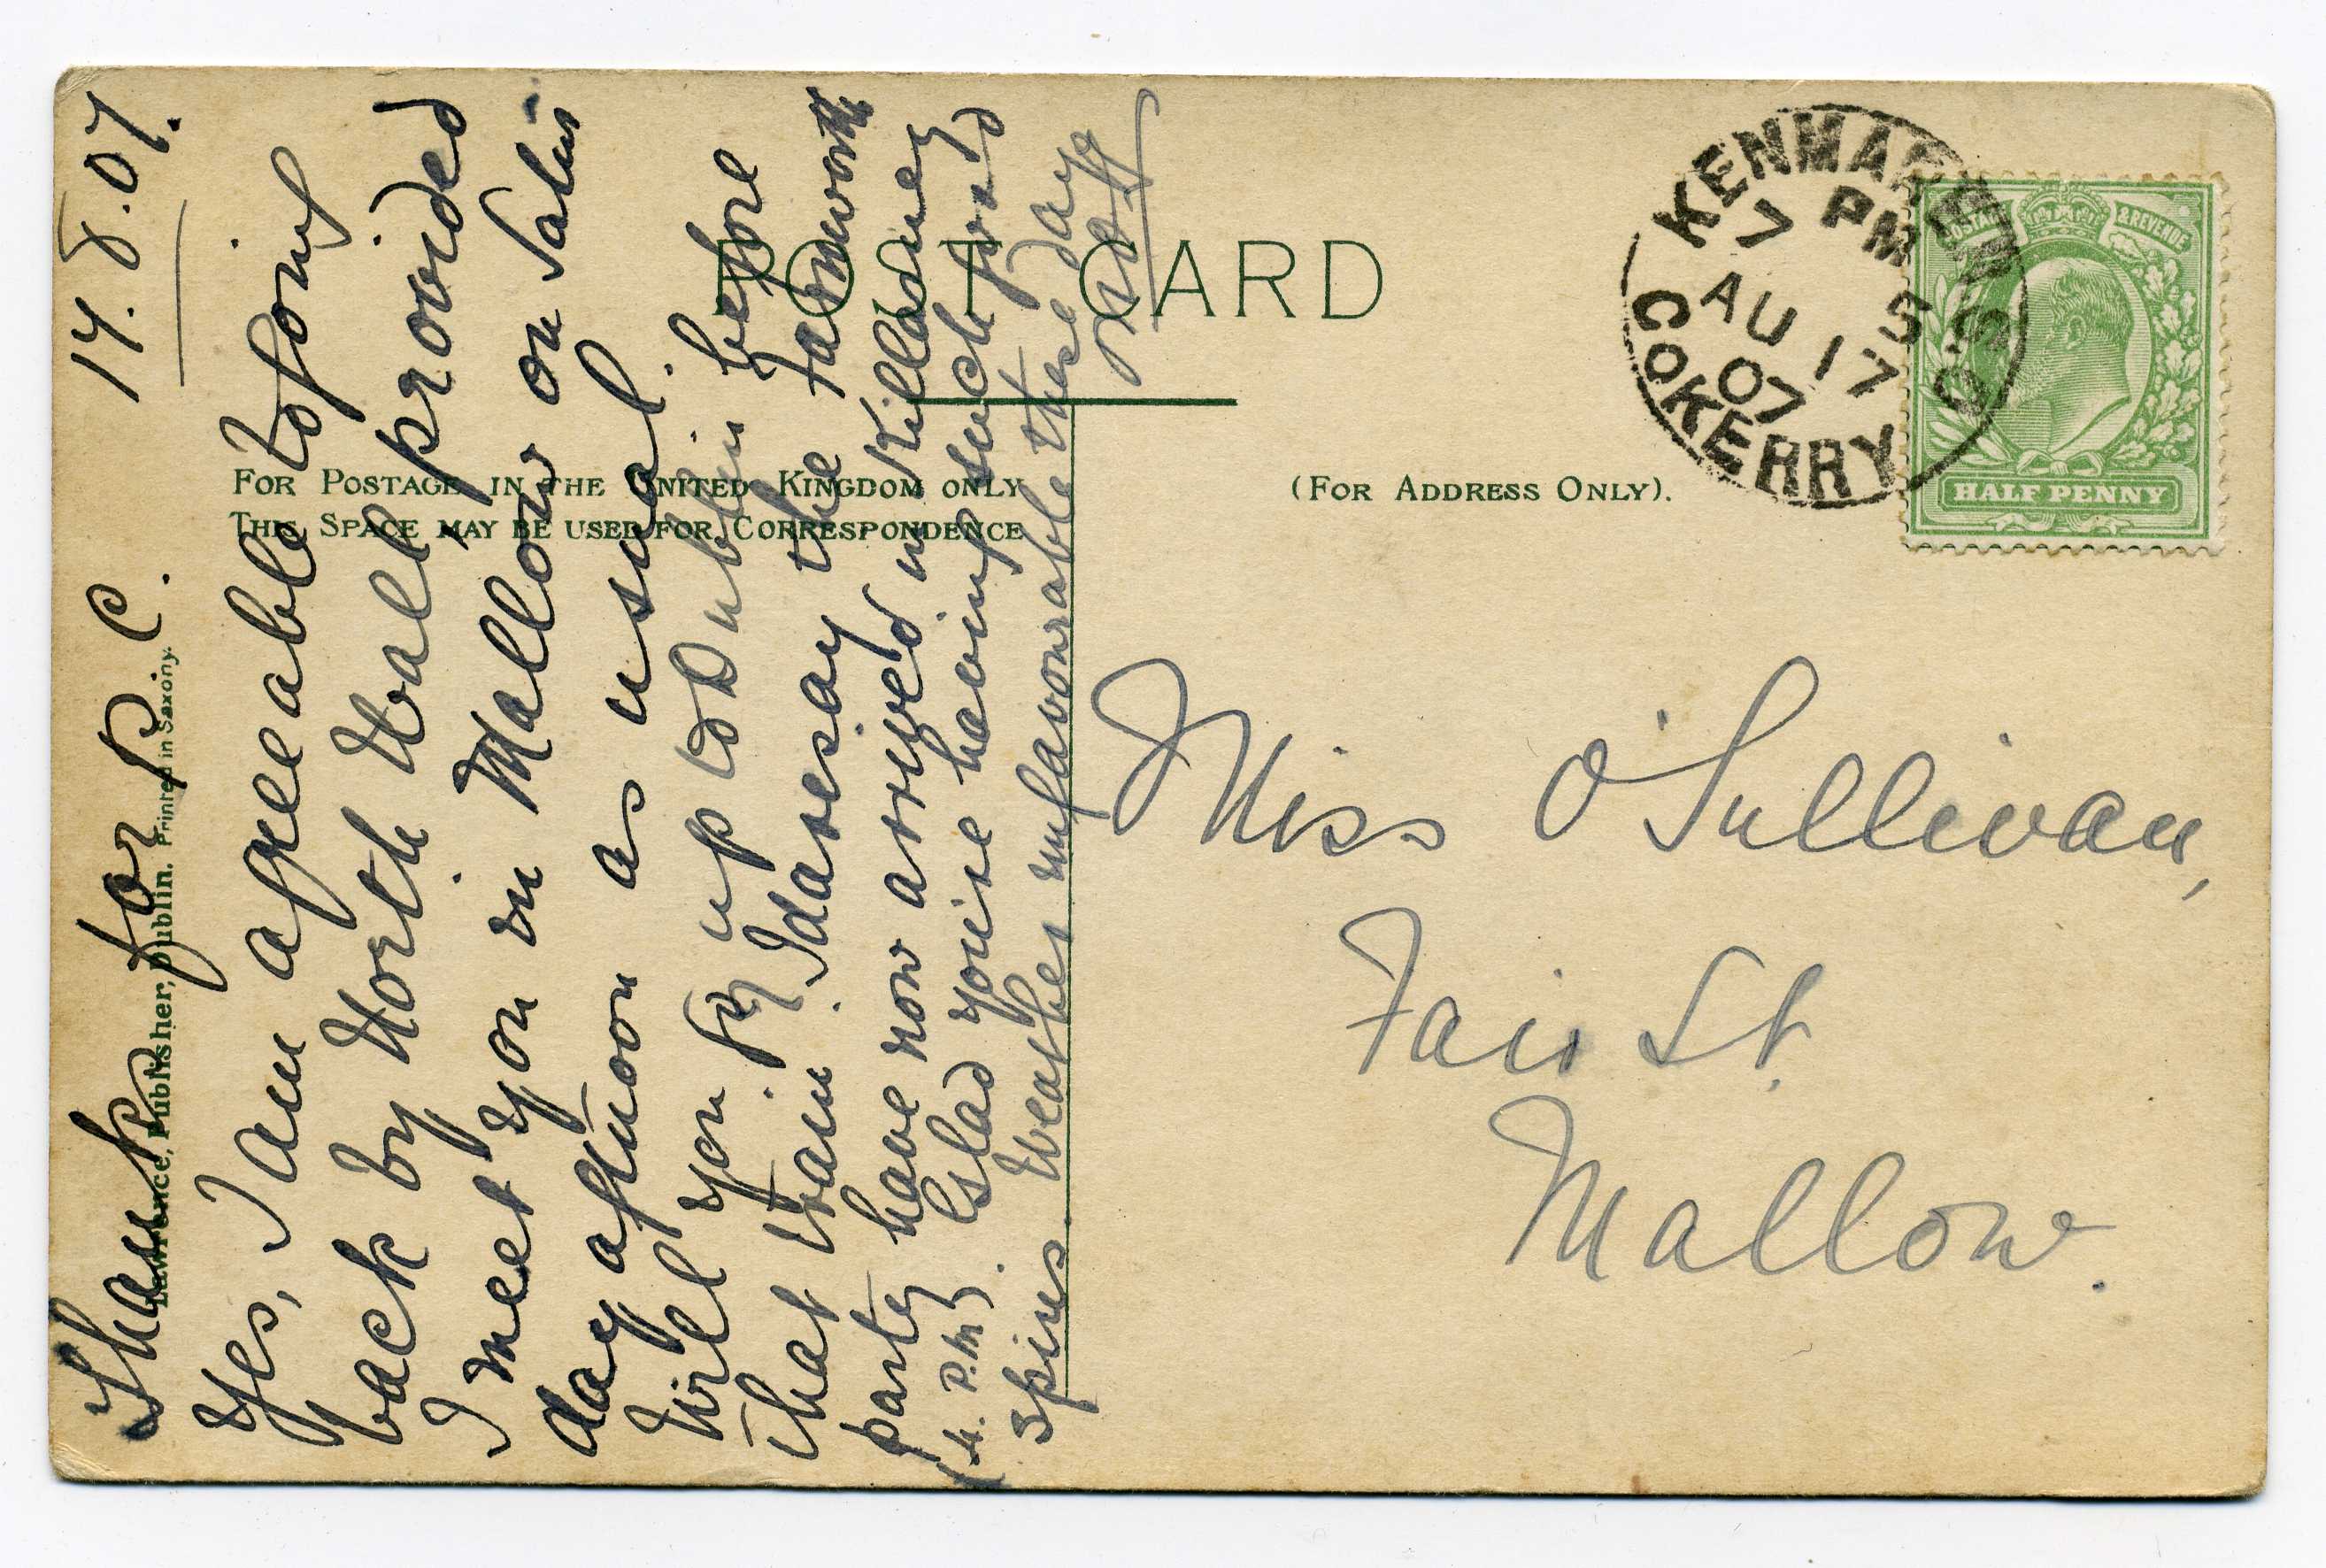 POST CARD
FOR POSTAGE IN THE UNITED KINGDOM ONLY
THIS SPACE MAY BE USED FOR CORRESPONDENCE
(FOR ADDRESS ONLY).
Lawrence, Publisher, Dublin. Printed in Saxony.
KENMARE S.O
7 PM
AU 17 5
07
CO KERRY
POSTAGE & REVENUE
HALF PENNY
Thanks for P. C. 17.8.07.
Yes, I am agreeable to going
back by North Wall provided
I meet you in Mallow on Satur
day afternoon as usual.
Will you fly up to Dublin before
that train. I daresay the Farnworth
party have now arrived in Killarney
(4. P.M). Glad you're having such good
spins. Weather unfavourable these days
Miss O'Sullivan,
Fair St.
Mallow.